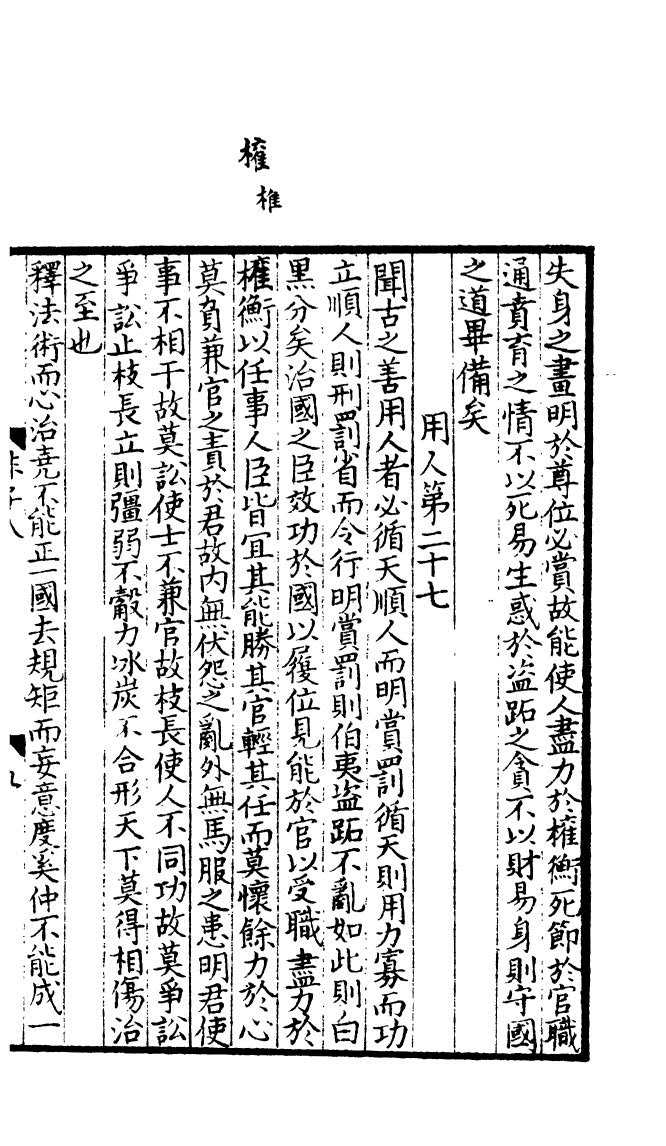 權 權
失身之畫明於尊位必賞故能使人盡力於權衡死節於官職
通賁育之情不以死易生惑於盜跖之貪不以財易身則守國
之道畢備矣
用人第二十七
聞古之善用人者必循天順人而明賞罰循天則用力寡而功
立順人則刑罰省而令行明賞罰則伯夷盜跖不亂如此則白
黑分矣治國之臣效功於國以履位見能於官以受職盡力於
權衡以任事人臣皆宜其能勝其官輕其任而莫懷餘力於心
莫負兼官之責於君故內無伏怨之亂外無馬服之患明君使
事不相干故莫訟使士不兼官故枝長使人不同功故莫爭訟
爭訟止枝長立則彊弱不觳力冰炭不合形天下莫得相傷治
之至也
釋法術而心治堯不能正一國去規矩而妄意度奚仲不能成一